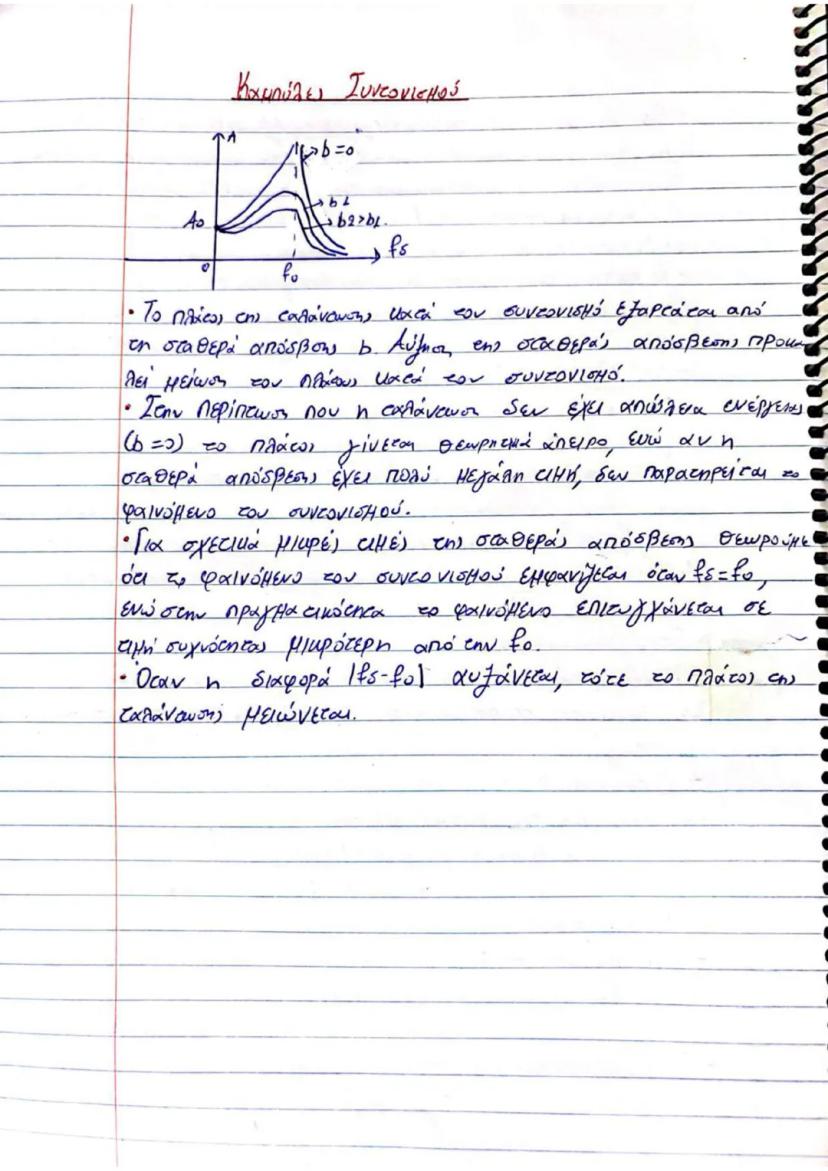 Καμπύλες Συντονισμού
A
b=0
b1
A0
b2>b1.
fδ
0
f0
• Το πλάτος της ταλάντωσης κατά τον συντονισμό εξαρτάται από
τη σταθερά απόσβσης b. Αύξηση της σταθεράς απόσβεσης προκα
λεί μείωση του πλάτους κατά τον συντονισμό.
• Στην περίπτωση που η ταλάντωση δεν έχει απώλεια ενέργειας
(b=0) το πλάτος γίνεται θεωρητικά άπειρο, ενώ αν η
σταθερά απόσβεσης έχει πολύ μεγάλη τιμή, δεν παρατηρείται το
φαινόμενο του συντονισμού.
• Για σχετικά μικρές τιμές της σταθεράς απόσβεσης θεωρούμε
ότι το φαινόμενο του συντονισμού εμφανίζεται όταν fδ=f0,
ενώ στην πραγματικότητα το φαινόμενο επιτυγχάνεται σε
τιμή συχνότητας μικρότερη από την f0.
• Όταν η διαφορά |fδ-f0| αυξάνεται, τότε το πλάτος της
ταλάντωσης μειώνεται.